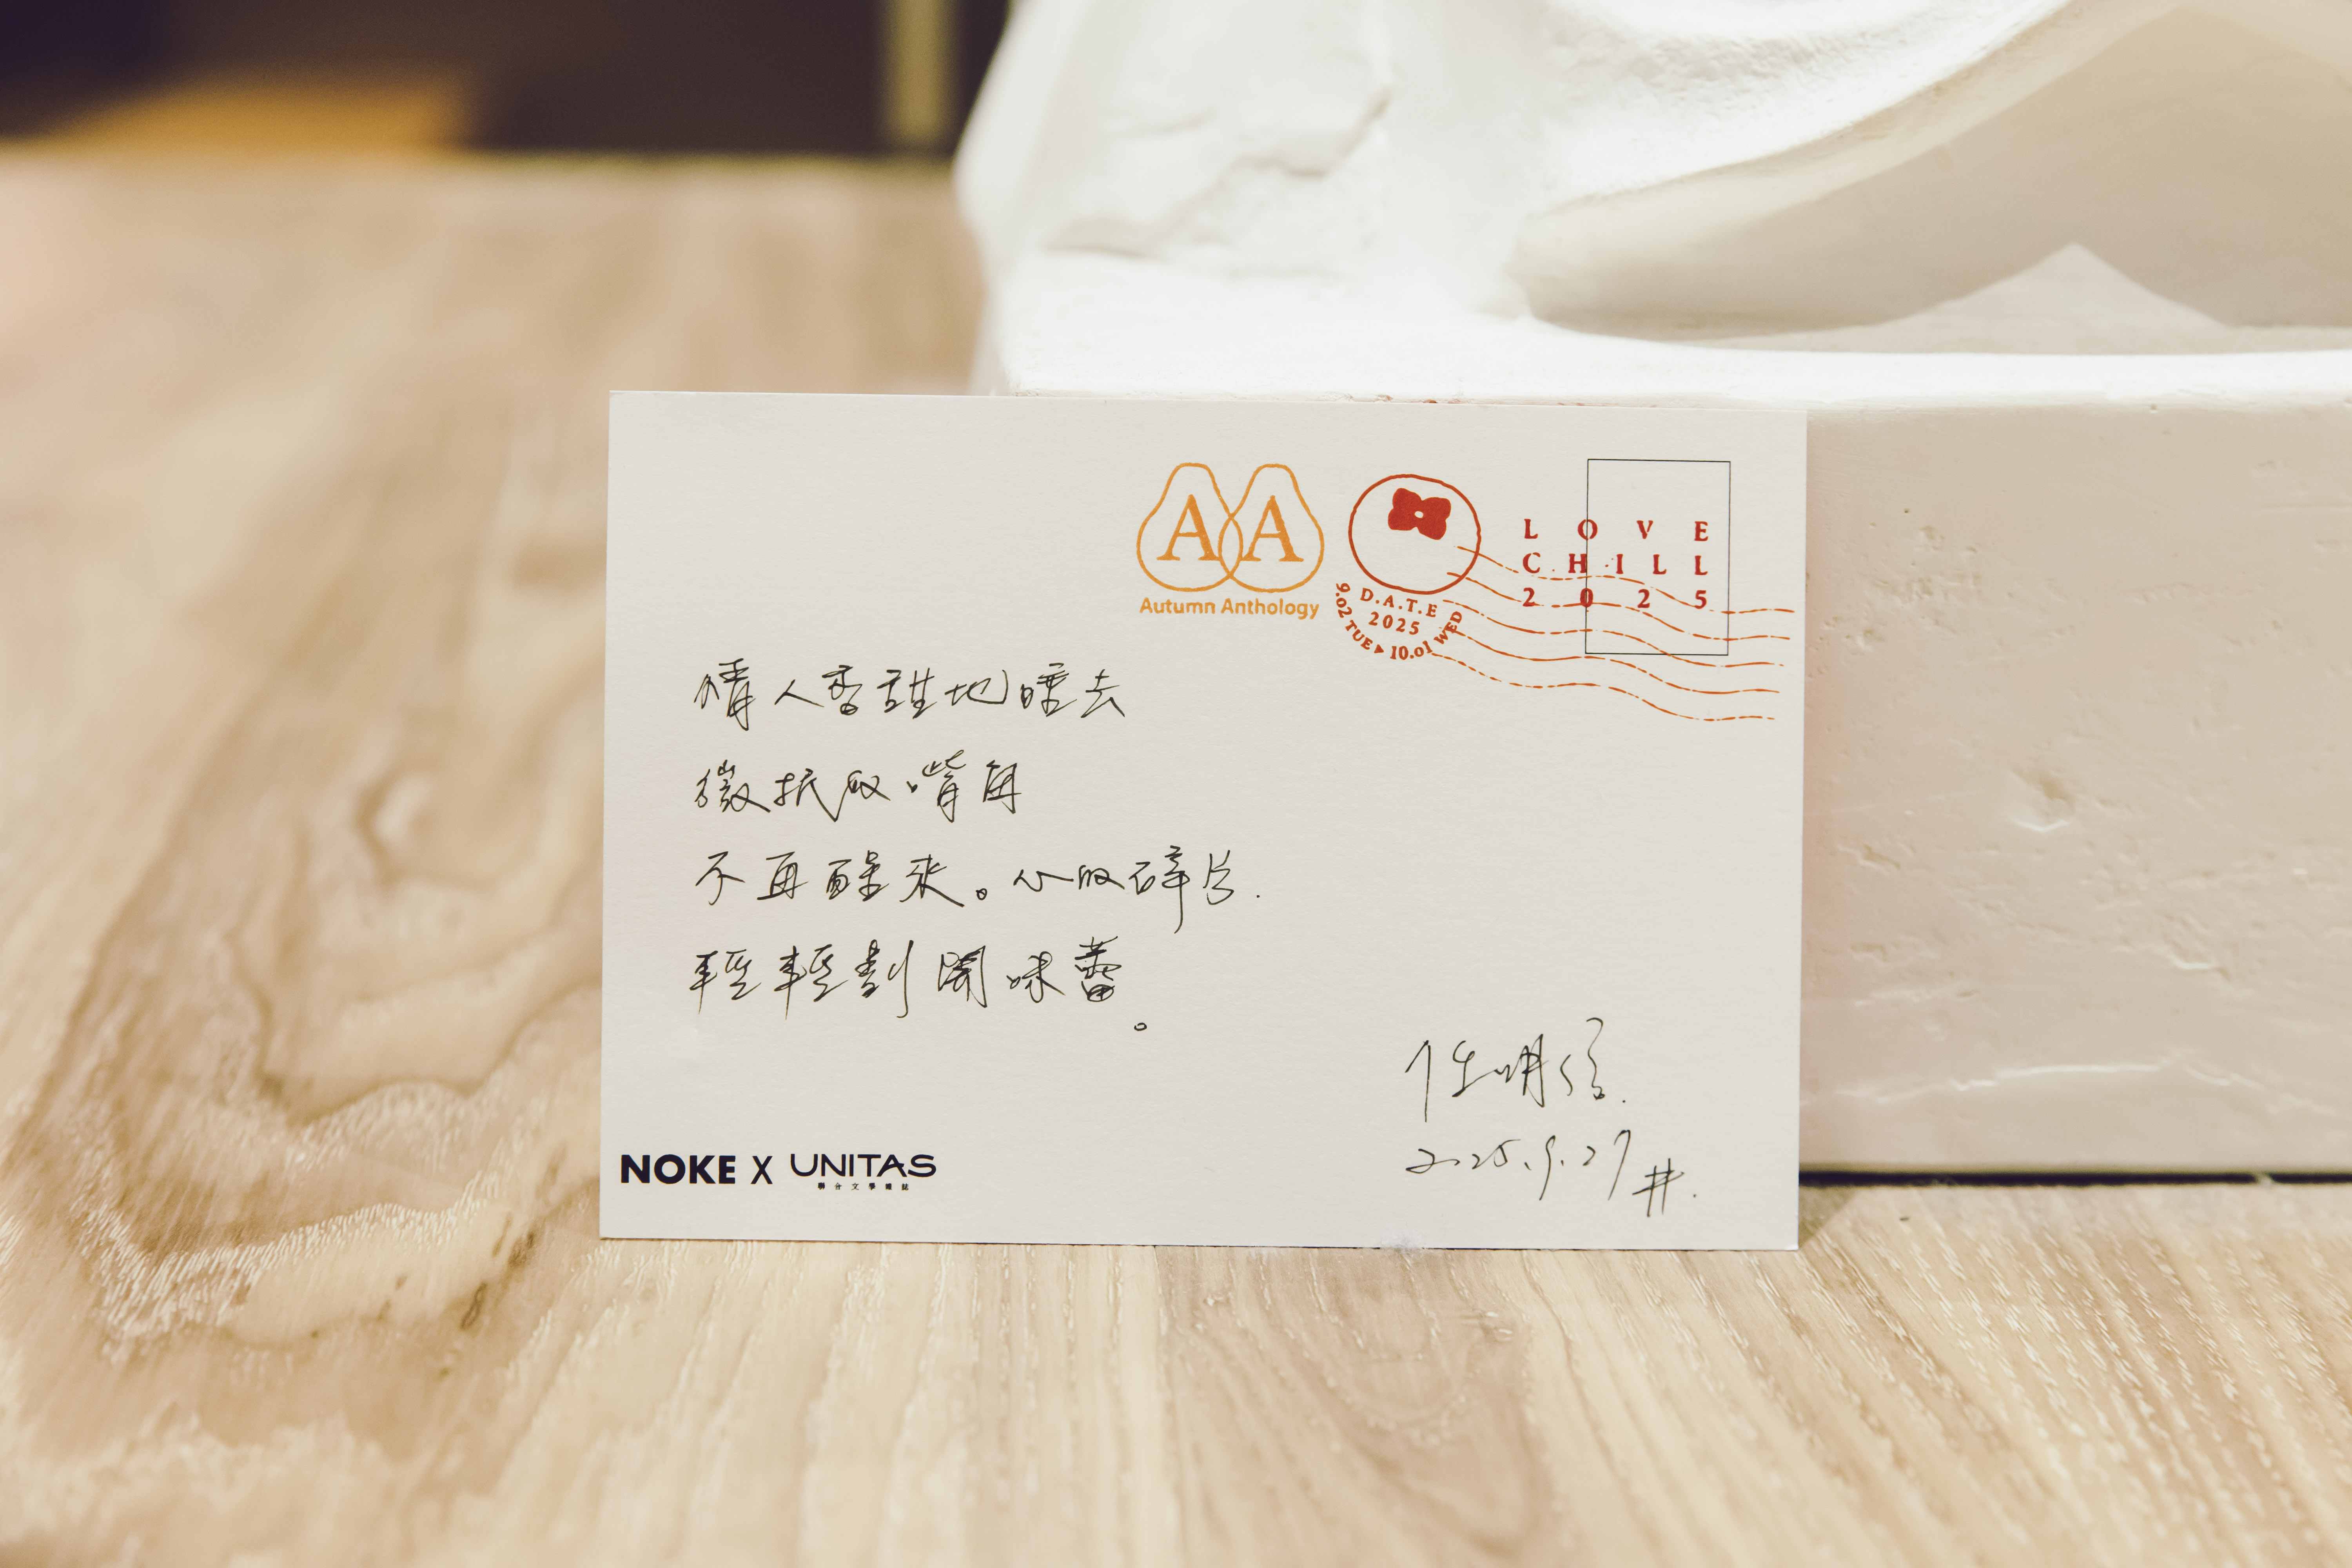 AA
Autumn Anthology
D.A.T.E
2025
9.02 TUE ▸ 10.01 WED
LOVE
CHILL
2025
情人香甜地睡去
微抿的嘴角
不再醒來。心的碎片.
輕輕割開味蕾。
任明信.
2025.9.27 #.
NOKE X UNITAS
聯合文學雜誌